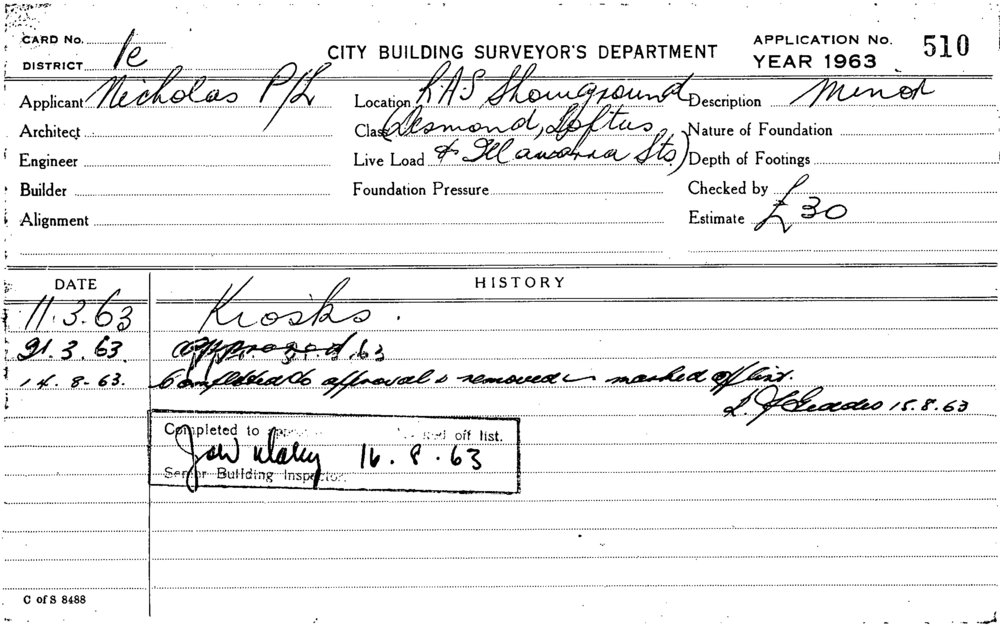 CARD No.
DISTRICT 1e
CITY BUILDING SURVEYOR'S DEPARTMENT
APPLICATION No. 510
YEAR 1963
Applicant Nicholas P/L
Location R.A.S Showground
Description Minor
Architect
Class (Desmond, Loftus
Nature of Foundation
Engineer
Live Load & Illawarra Sts)
Depth of Footings
Builder
Foundation Pressure
Checked by
Alignment
Estimate £30
DATE
HISTORY
11.3.63 Kiosks.
21.3.63. approved
14.8-63. Completed to approval & removed marked off list.
15.8.63
Completed to off list.
16.8.63
Senior Building Inspector.
C of S 8488